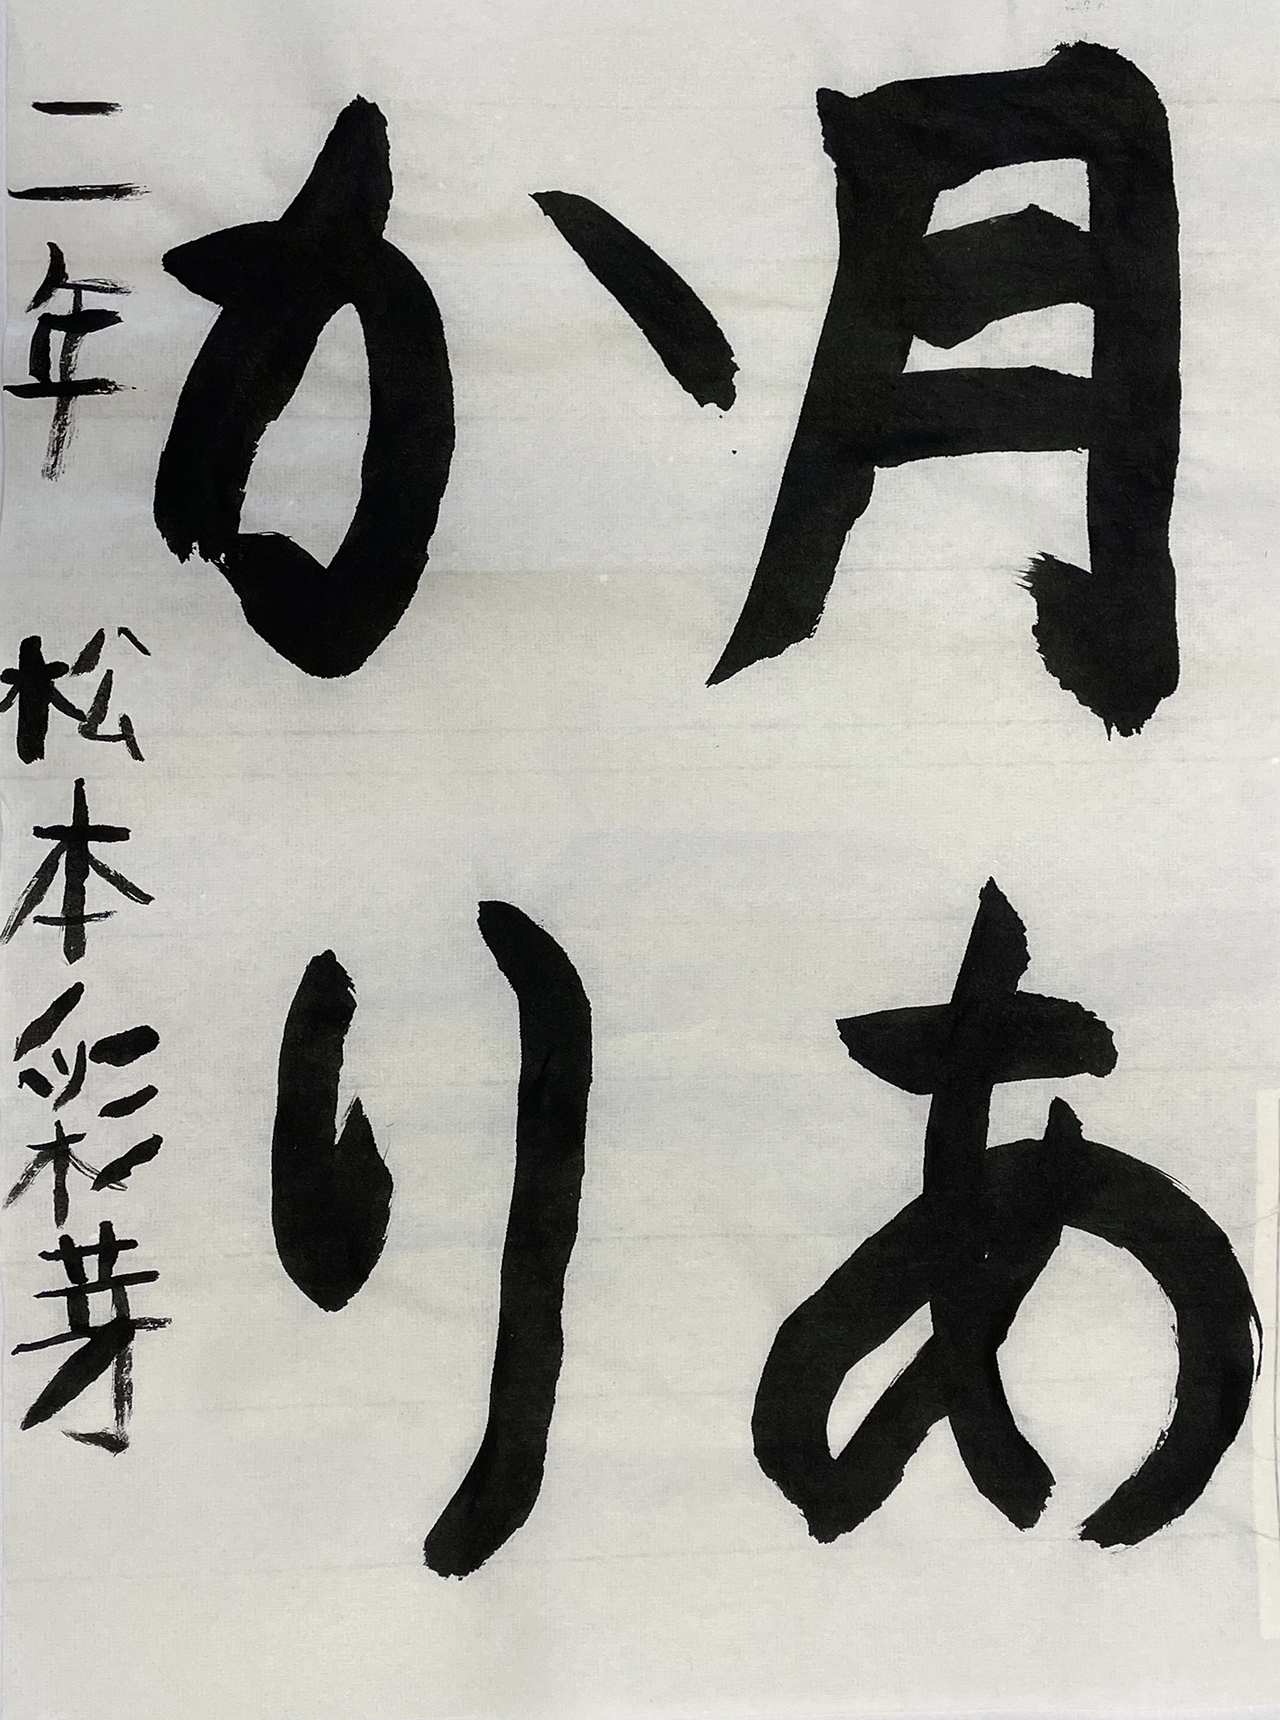 月あ
かり
二年 松本彩芽